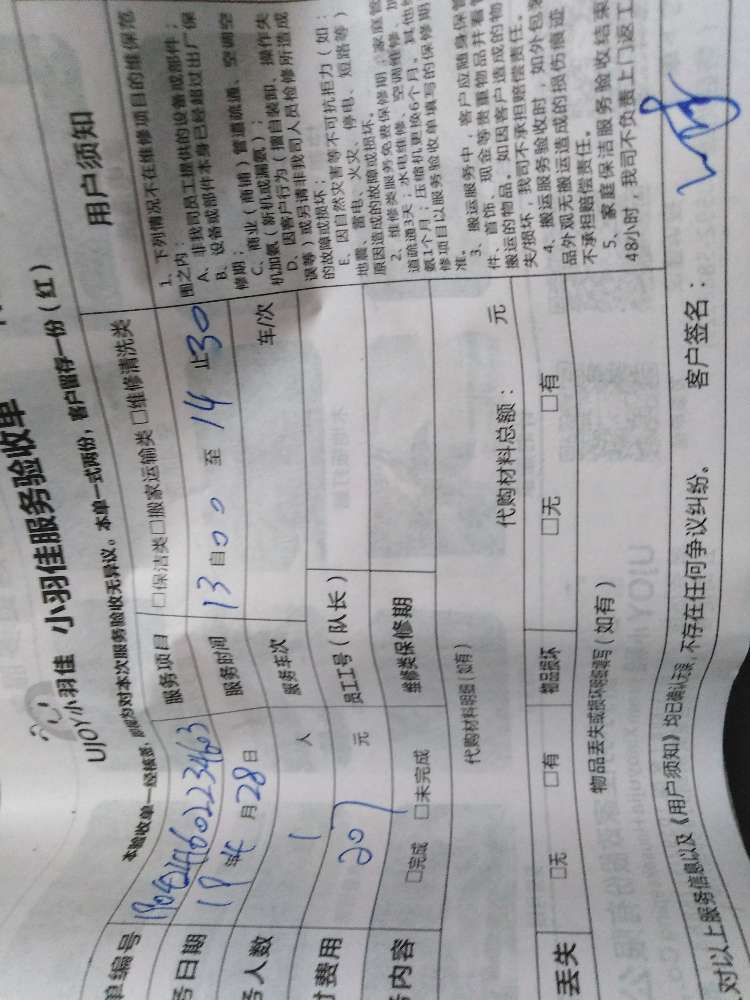 UJOY小羽佳 小羽佳服务验收单
本验收单一经核签，即视为对本次服务验收无异议。本单一式两份，客户留存一份（红）
单编号
服务项目 □保洁类□搬家运输类 □维修清洗类
务日期 19年4月28日
服务时间 13自00至14止30
务人数 1人
服务车次 车/次
付费用 207元
员工工号（队长）
务内容 □完成 □未完成
维修类保修期
代购材料明细（如有）
代购材料总额： 元
丢失 □无 □有
物品损坏 □无 □有
物品丢失或损坏明细填写（如有）
用户须知
1、下列情况不在维修项目的维保范
围之内：
A、非我司员工提供的设备或部件；
B、设备或部件本身已经超过出厂保
修期；
C、商业（商铺）管道疏通、空调空
机加氨（新机或漏氨）；
D、因客户行为（擅自装卸、操作失
误等）或另请非我司人员检修所造成
的故障或损坏；
E、因自然灾害等不可抗拒力（如：
地震、雷电、火灾、停电、短路等）
原因造成的故障或损坏。
2、维修类服务免费保修期：家庭管
道疏通3天；水电维修、空调维修、加
氨1个月；压缩机更换6个月。其他维
修项目以服务验收单填写的保修期
准。
3、搬运服务中，客户应随身保管
件、首饰、现金等贵重物品并看管
搬运的物品。如因客户造成的物
失/损坏，我司不承担赔偿责任。
4、搬运服务验收时，如外包装
品外观无搬运造成的损伤痕迹
不承担赔偿责任。
5、家庭保洁服务验收结束
48小时，我司不负责上门返工
对以上服务信息以及《用户须知》均已确认无误，不存在任何争议纠纷。
客户签名：